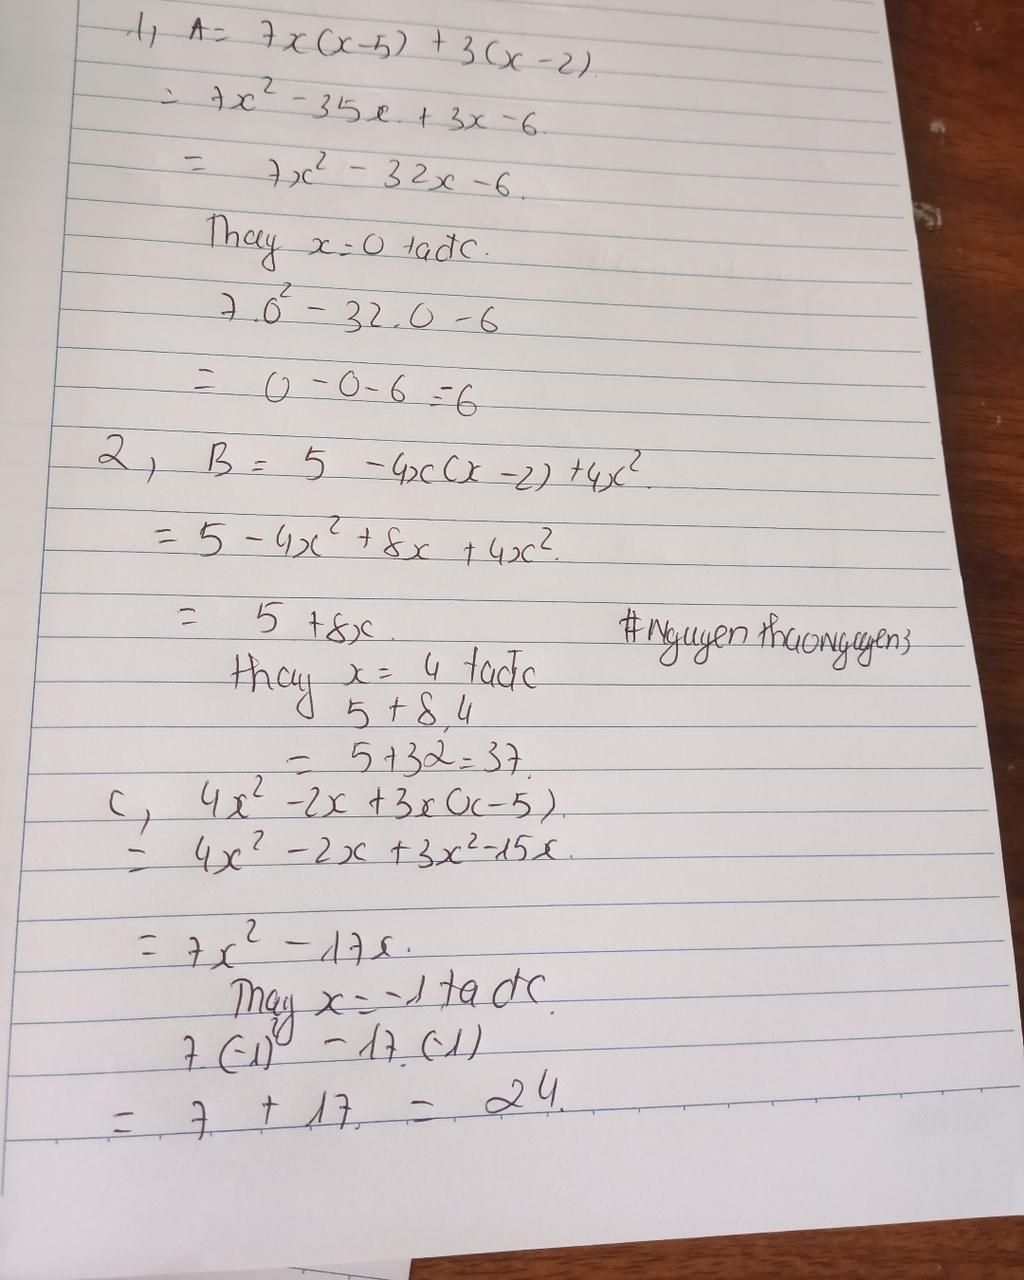 1, A = 7x(x-5) + 3(x-2).
= 7x² - 35x + 3x - 6.
= 7x² - 32x - 6.
Thay x = 0 ta đc.
7.0² - 32.0 - 6
= 0 - 0 - 6 = -6
2, B = 5 - 4x(x-2) + 4x².
= 5 - 4x² + 8x + 4x².
= 5 + 8x.
#Nguyenthaonguyen3
thay x = 4 ta đc
5 + 8.4
= 5 + 32 = 37.
C, 4x² - 2x + 3x(x-5).
= 4x² - 2x + 3x² - 15x.
= 7x² - 17x.
Thay x = -1 ta đc.
7.(-1)² - 17.(-1)
= 7 + 17. = 24.